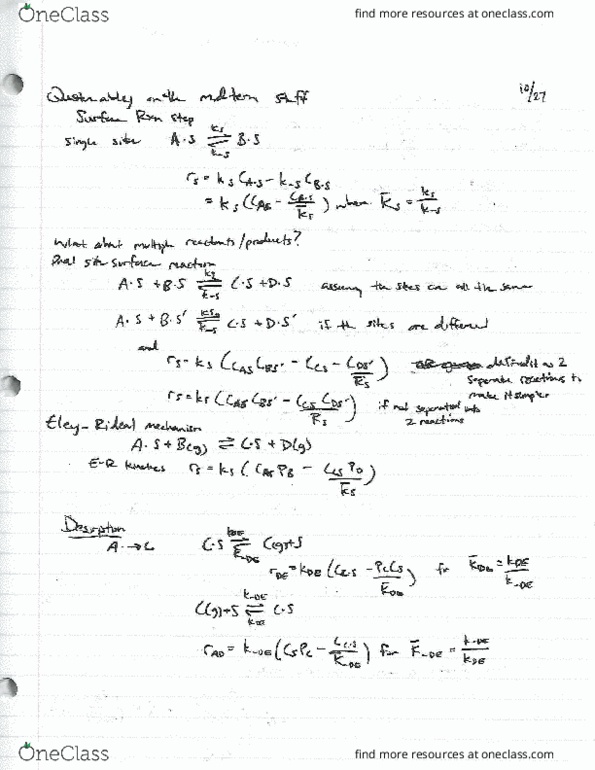 OneClass find more resources at oneclass.com
10/27
on the midterm stuff
Surface Rxn step
single site A·S ⇌ B·S
ks
k-s
rs = ks CA·S - k-s CB·S
= ks (CAS - CB·S/K̄s) where K̄s = ks/k-s
What about multiple reactants/products?
Dual site surface reaction
A·S + B·S ⇌ C·S + D·S assuming the sites are all the same
A·S + B·S' ⇌ C·S + D·S' if the sites are different
and
rs = ks (CAS CBS' - CCS - CDS'/K̄s) define it as 2
separate reactions to
make it simpler
rs = ks (CAS CBS' - CCS CDS'/K̄s) if not separated into
2 reactions
Eley-Rideal mechanism
A·S + B(g) ⇌ C·S + D(g)
E-R kinetics rs = ks (CAS PB - CCS PD/K̄s)
Desorption
A → C C·S ⇌ C(g) + S
kDE
k-DE
rDE = kDE (CC·S - PC CS/K̄DE) for K̄DE = kDE/k-DE
C(g) + S ⇌ C·S
k-DE
kDE
rAD = k-DE (CS PC - CC·S/K̄-DE) for K̄-DE = k-DE/kDE
OneClass find more resources at oneclass.com